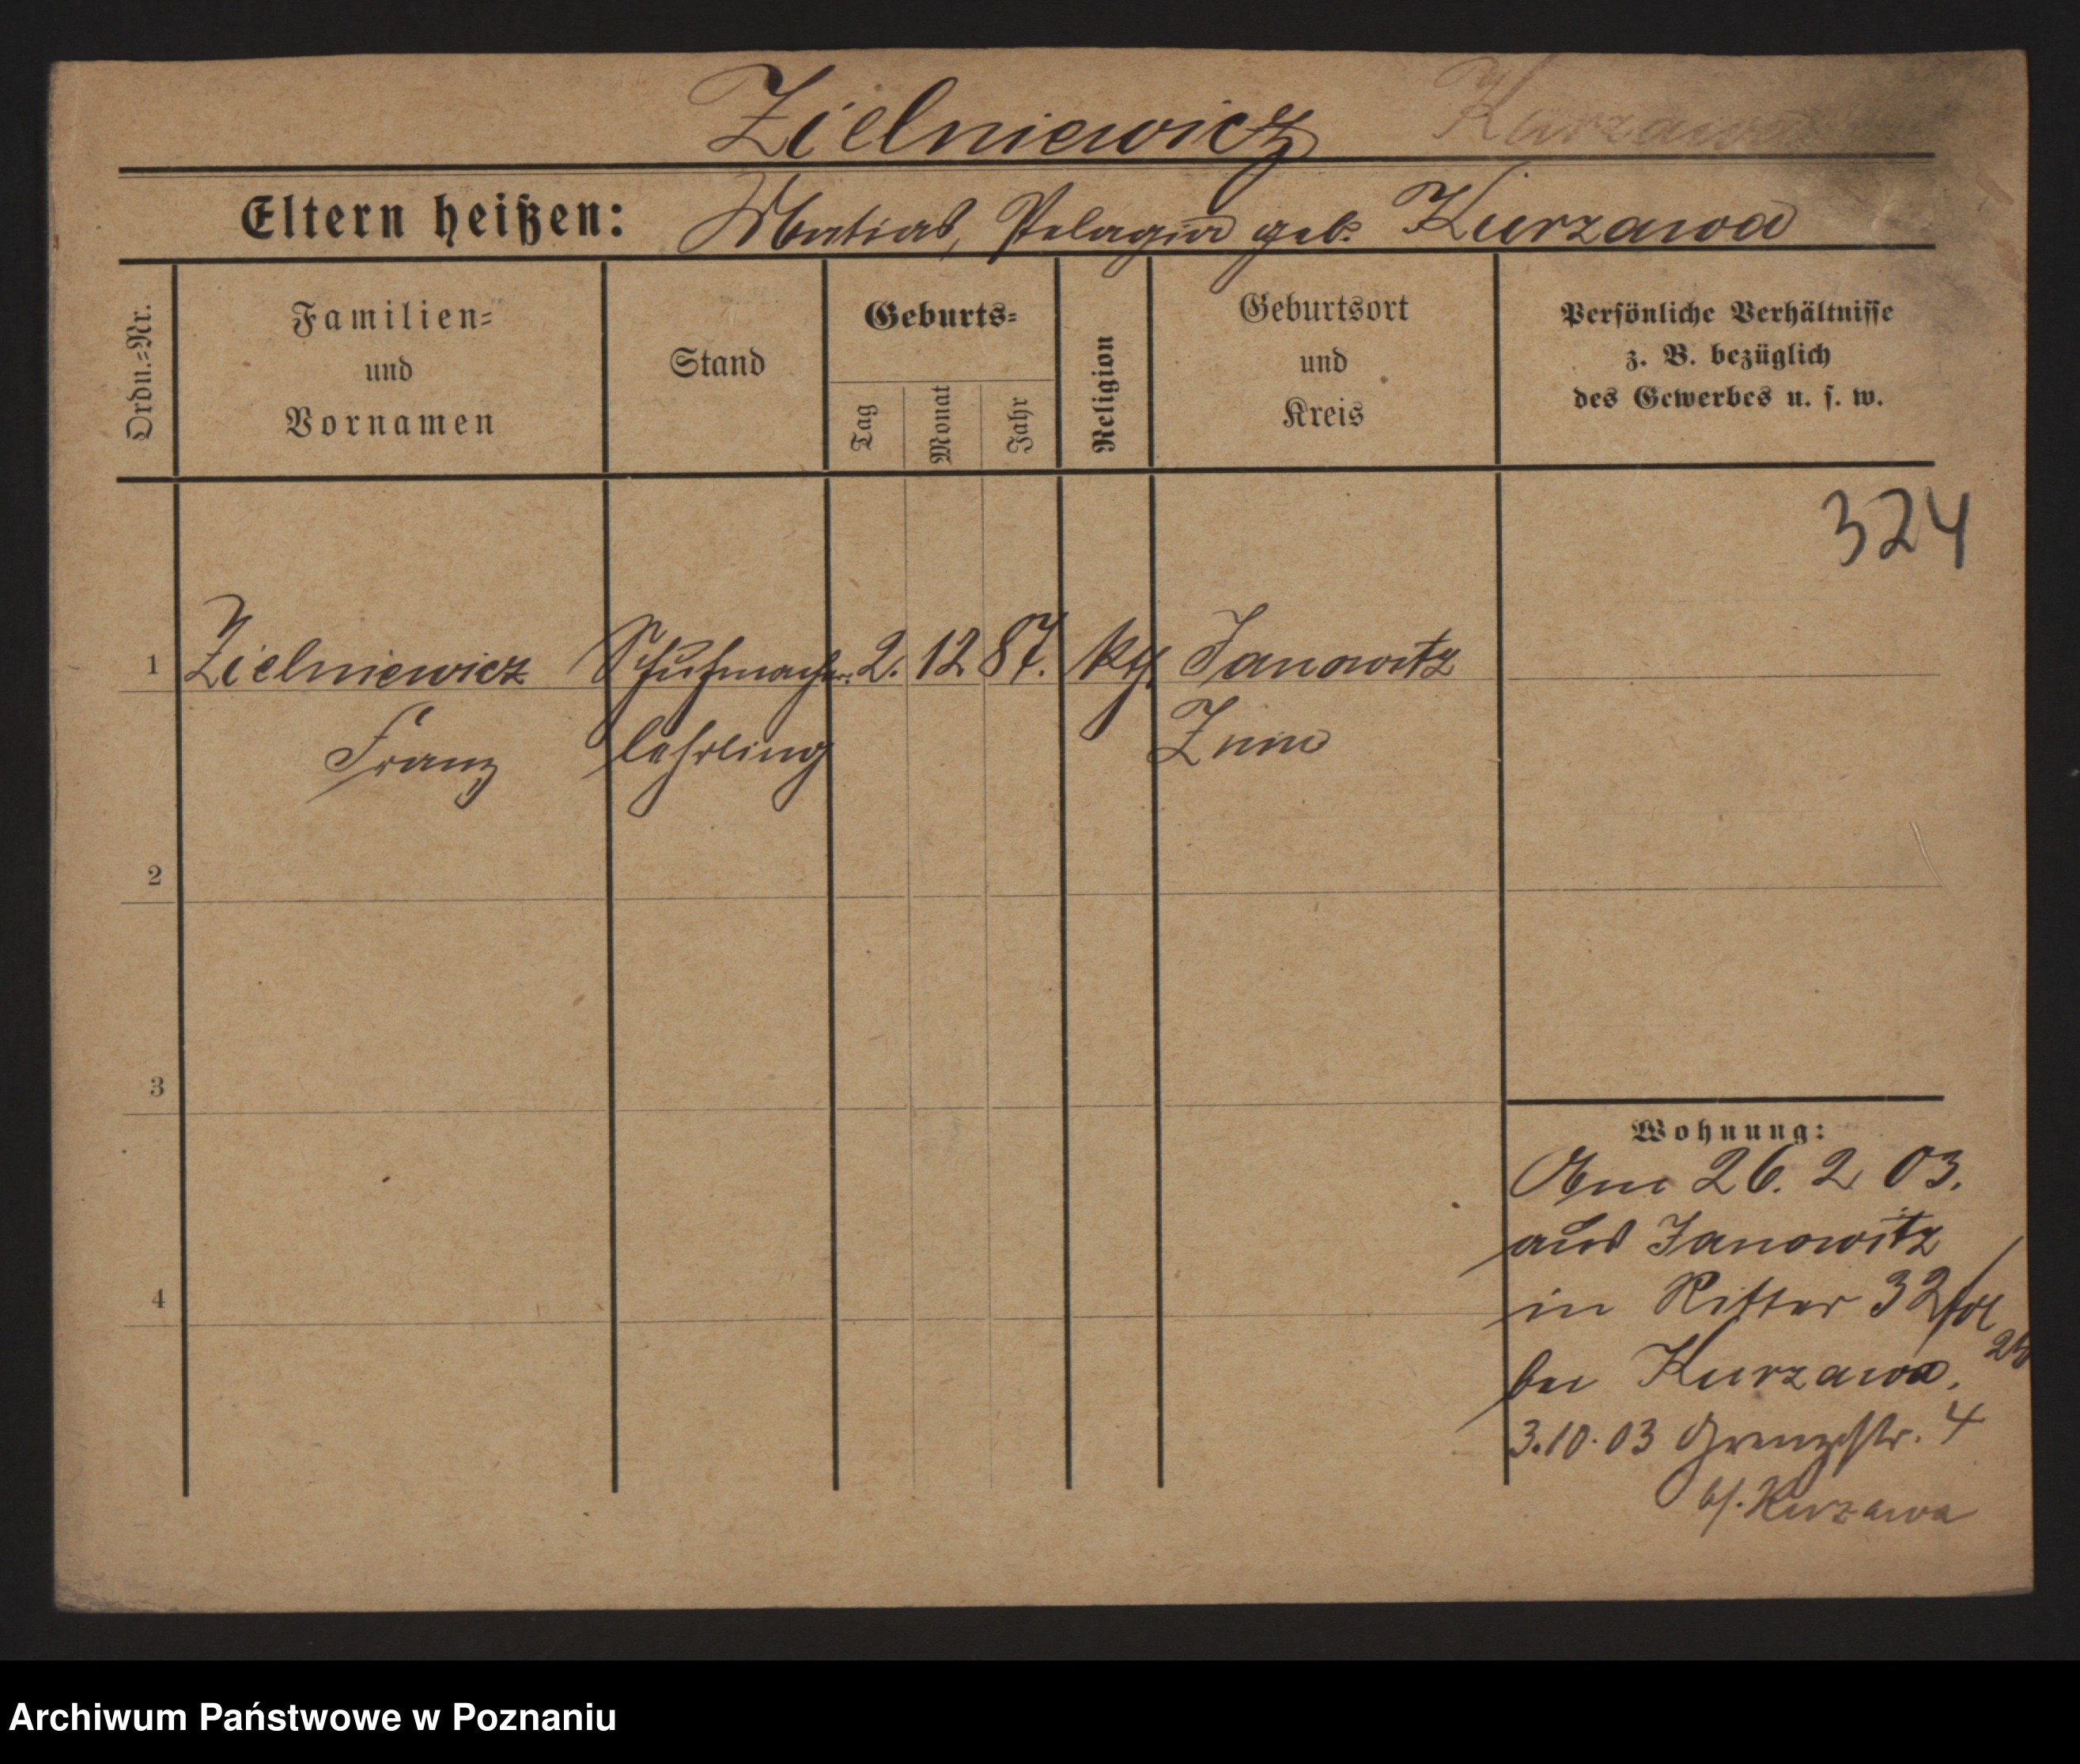 Zielniewicz Kurzawa
Eltern heißen: Matias, Pelagia geb. Kurzawa
Ordn.=Nr.
Familien=
und
Vornamen
Stand
Geburts=
Tag
Monat
Jahr
Religion
Geburtsort
und
Kreis
Persönliche Verhältnisse
z. B. bezüglich
des Gewerbes u. s. w.
324
1 Zielniewicz Schuhmacher- 2. 12 87. kth. Janowitz
Franz lehrling Znin
2
3
4
Wohnung:
Am 26. 2 03.
aus Janowitz
in Ritter 32
bei Kurzawa.
3.10.03 Grenzstr. 4
b/. Kurzawa
Archiwum Państwowe w Poznaniu